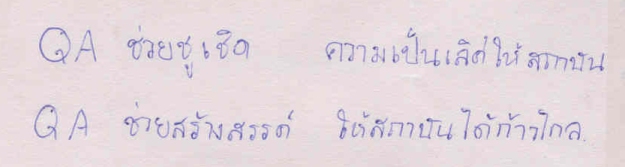 QA ช่วยชูเชิด ความเป็นเลิศให้สถาบัน
QA ช่วยสร้างสรรค์ ให้สถาบันได้ก้าวไกล